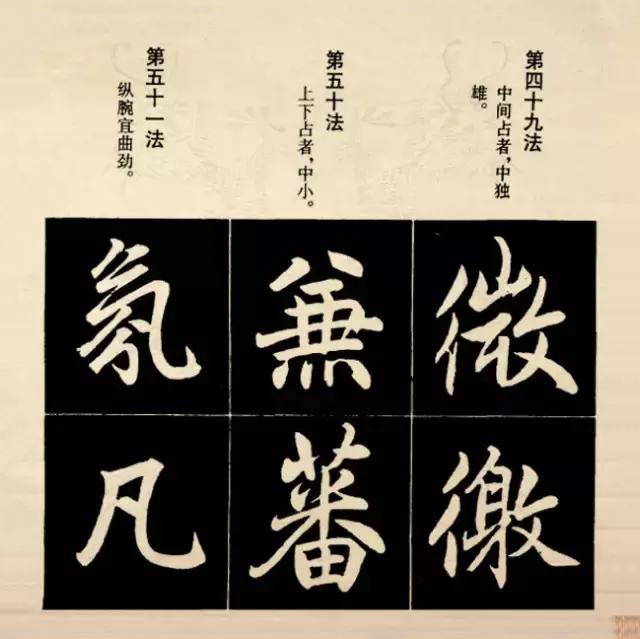 第四十九法
中间占者，中独
雄。
第五十法
上下占者，中小。
第五十一法
纵腕宜曲劲。
微
徼
兼
蕃
氛
凡